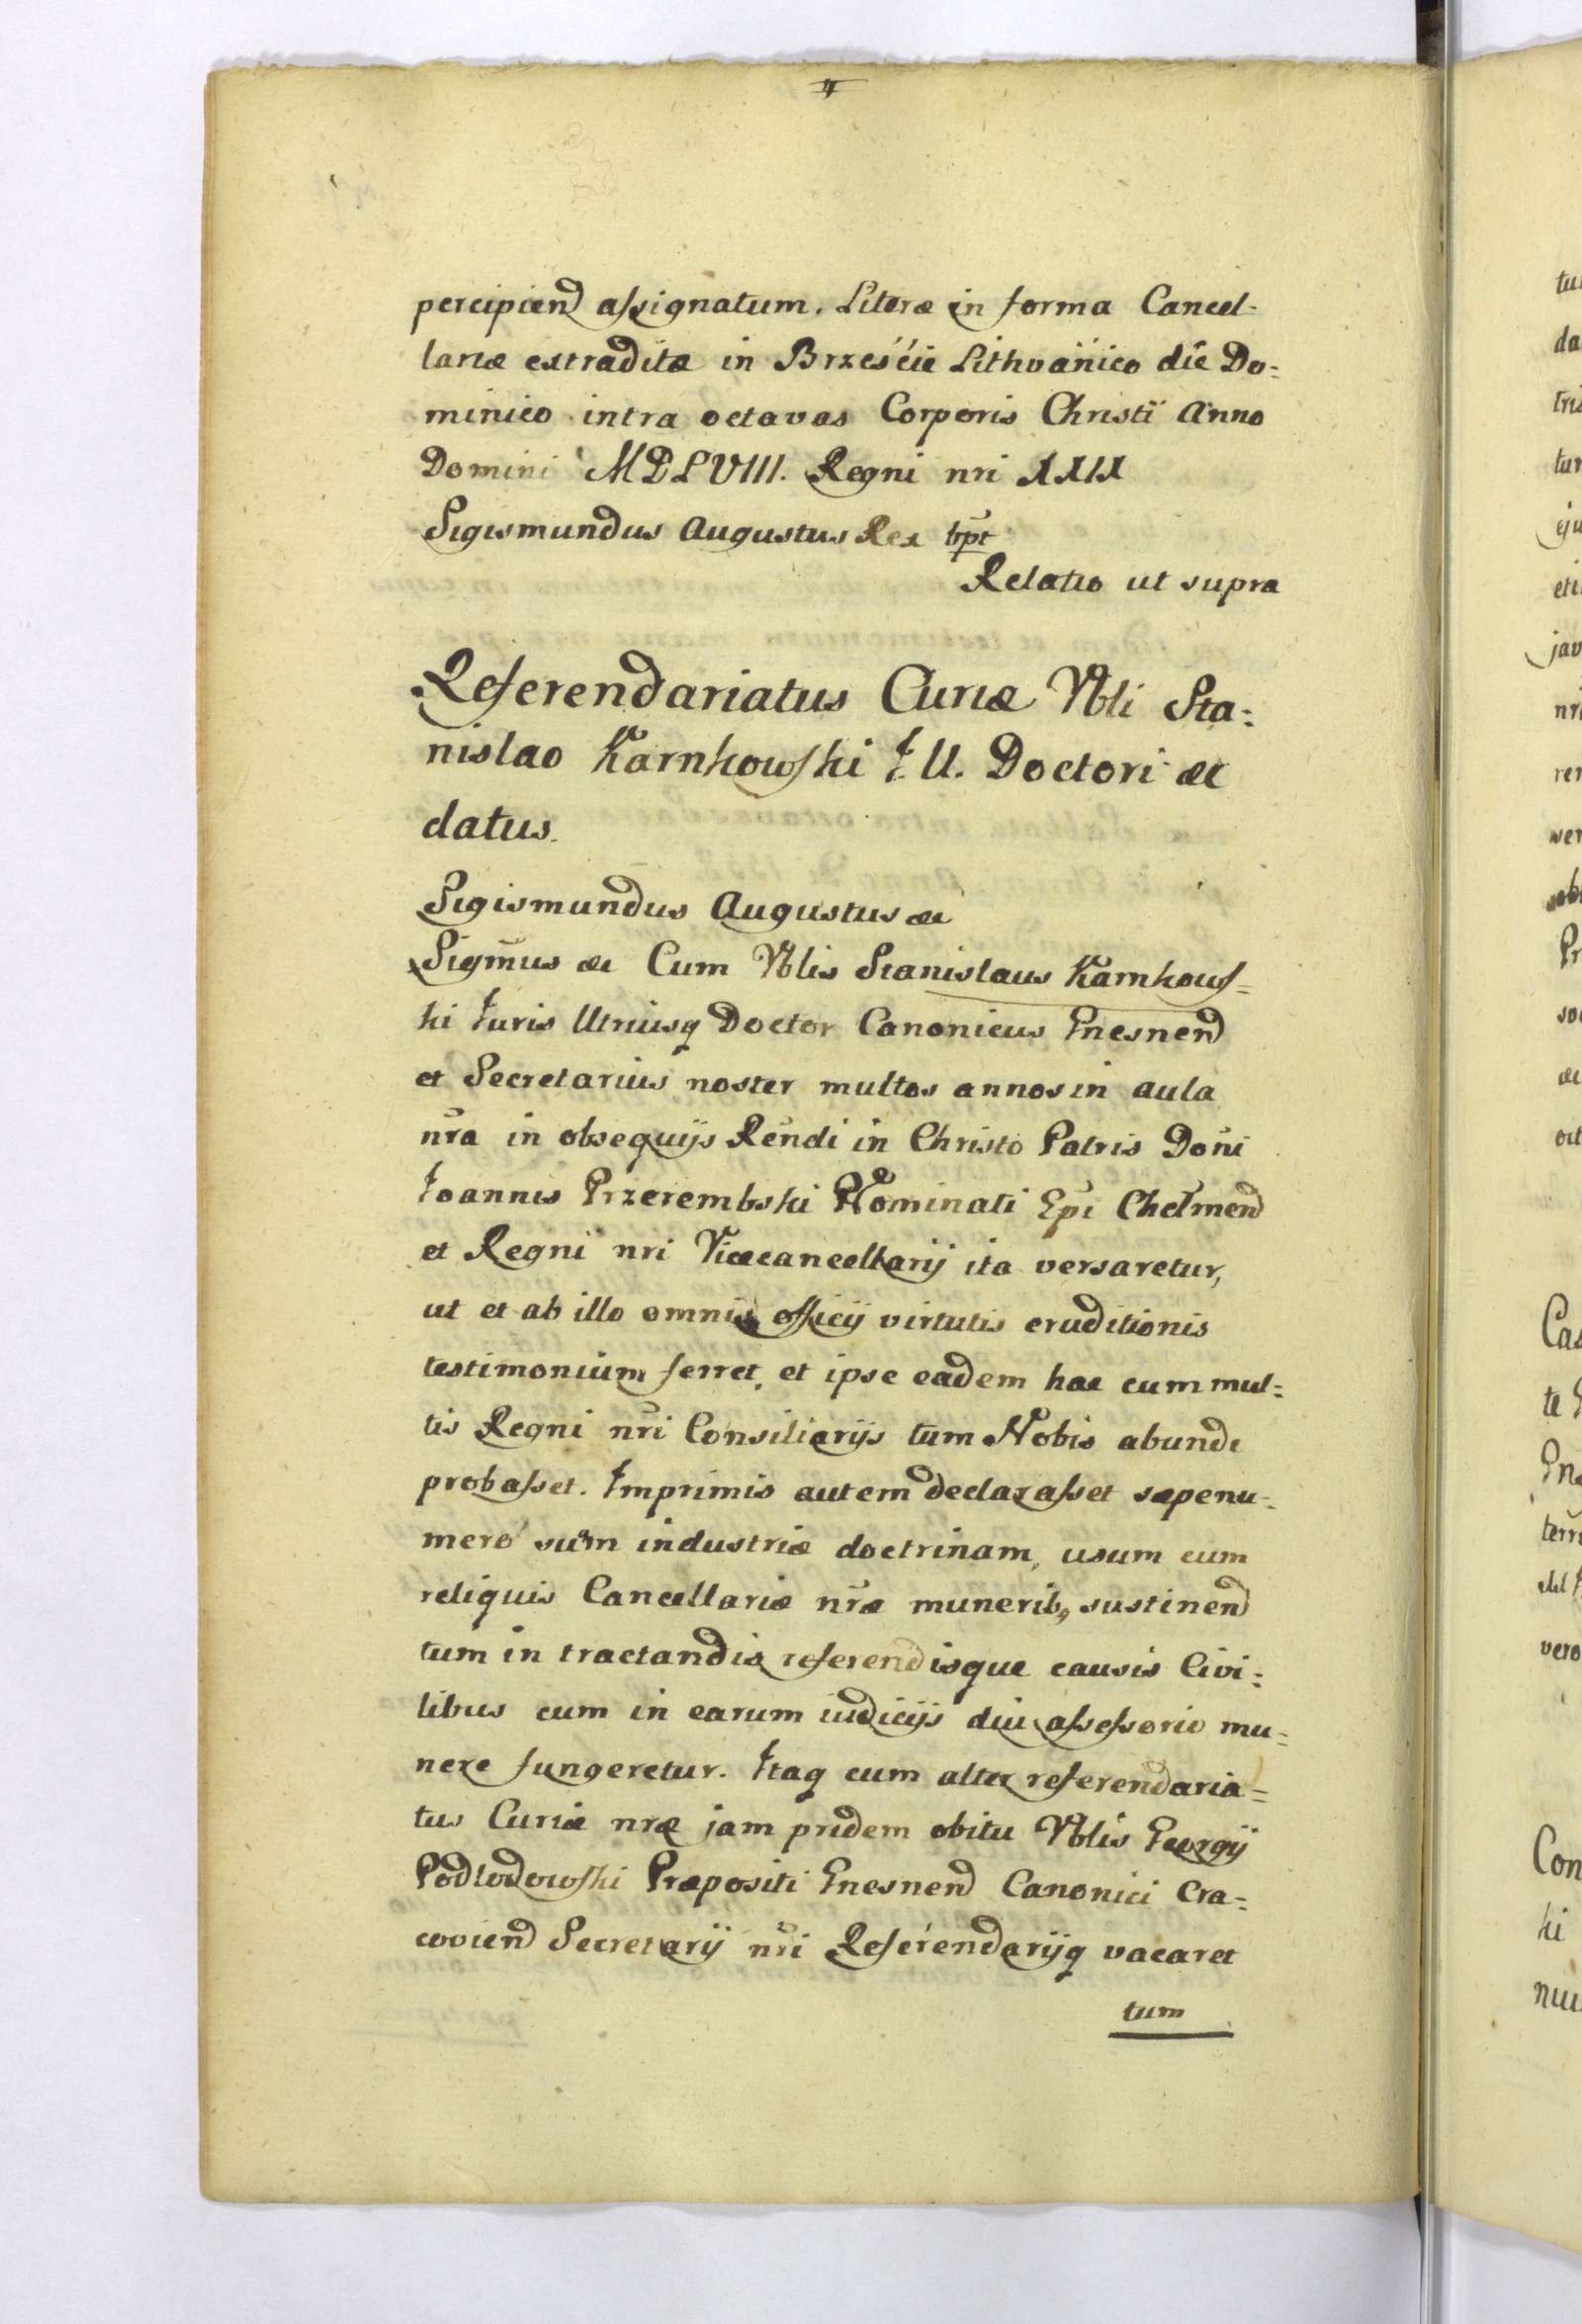 percipiend assignatum. Literæ in forma Cancel-
lariæ extraditæ in Brzeście Lithvanico die Do=
minico intra octavas Corporis Christi Anno
Domini MDLVIII. Regni nri XXIX
Sigismundus Augustus Rex spt
Relatio ut supra
Referendariatus Curiæ Nbli Sta=
nislao Karnkowski I. U. Doctori &c
datus.
Sigismundus Augustus &c
Sigmus &c Cum Nblis Stanislaus Karnkows=
ki Juris Utriusq Doctor Canonicus Gnesnend
et Secretarius noster multos annos in aula
nra in obsequijs Rendi in Christo Patris Doni
Joannis Przerembski Nominati Epi Chełmend
et Regni nri Vicecancellarij ita versaretur,
ut et ab illo omnis officij virtutis eruditionis
testimonium ferret, et ipse eadem hæc cum mul=
tis Regni nri Consiliarijs tum Nobis abunde
probasset. Imprimis autem declarasset sæpenu=
mero suam industriæ doctrinam, usum cum
reliquis Cancellariæ nræ munerib, sustinend
tum in tractandis referendisque causis Civi=
libus cum in earum iudicijs diu assessorio mu=
nere fungeretur. Itaq cum alter referendaria=
tus Curiæ nræ jam pridem obitu Nblis Georgij
Podlodowski Præpositi Gnesnend Canonici Cra=
coviend Secretarij nri Referendarijq vacaret
tum